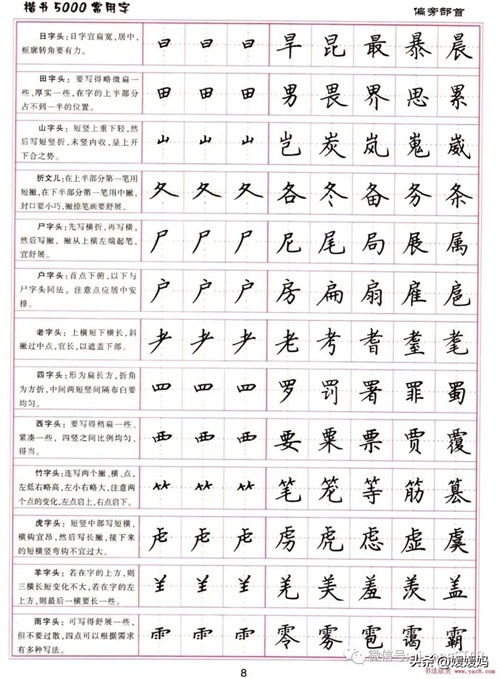 楷书5000常用字
偏旁部首
日字头:日字宜扁宽,居中,
框廓转角要有力。
日 日 日 旱 昆 最 暴 晨
田字头:要写得略微扁一
些,厚实一些,在字的上半部分
占不到一半的位置。
田 田 田 男 畏 界 思 累
山字头:短竖上重下轻,然
后写短竖折,末竖内收,呈上开
下合之势。
山 山 山 岂 炭 岚 嵬 崴
折文儿:在上半部分第一笔用
短撇,在下半部分第一笔用中撇,
封口要小巧,撇捺笔画要舒展。
夂 夂 夂 各 冬 备 务 条
尸字头:先写横折,再写横,
然后写撇。撇从上横左端起笔,
宜舒展。
尸 尸 尸 尼 尾 局 展 属
户字头:首点下俯,以下与
尸字头同法。注意点应居中安
排。
户 户 户 房 扁 扇 雇 扈
老字头:上横短下横长,斜
撇过中点,宜长,以遮盖下部。
耂 耂 耂 老 考 耆 耋 耄
四字头:形为扁长方,折角
为方折,中间两短竖间隔布白要
均匀。
罒 罒 罒 罗 罚 署 罪 蜀
西字头:要写得稍扁一些,
紧凑一些,四竖之间比例均匀、
得当。
覀 覀 覀 要 粟 票 贾 覆
竹字头:连写两个撇、横、点,
左低右略高,左小右略大,注意两
个点的变化,左点启上,右点启下。
⺮ ⺮ ⺮ 笔 笼 等 筋 篡
虎字头:短竖中部写短横,
横钩宜昂,然后写长撇,接下来
的短横竖弯钩不宜过大。
虍 虍 虍 虏 虎 虑 虚 虞
羊字头:若在字的上方,则
三横长短变化不大,若在字的左
上方,则最后一横要长一些。
羊 羊 羊 羌 美 羞 羡 盖
雨字头:可写得舒展一些,
但不要过散,四点可以根据需求
有多种写法。
雨 雨 雨 零 雾 雹 霭 霸
8
微信号:
头条@媛媛妈
书法欣赏 www.yac8.com